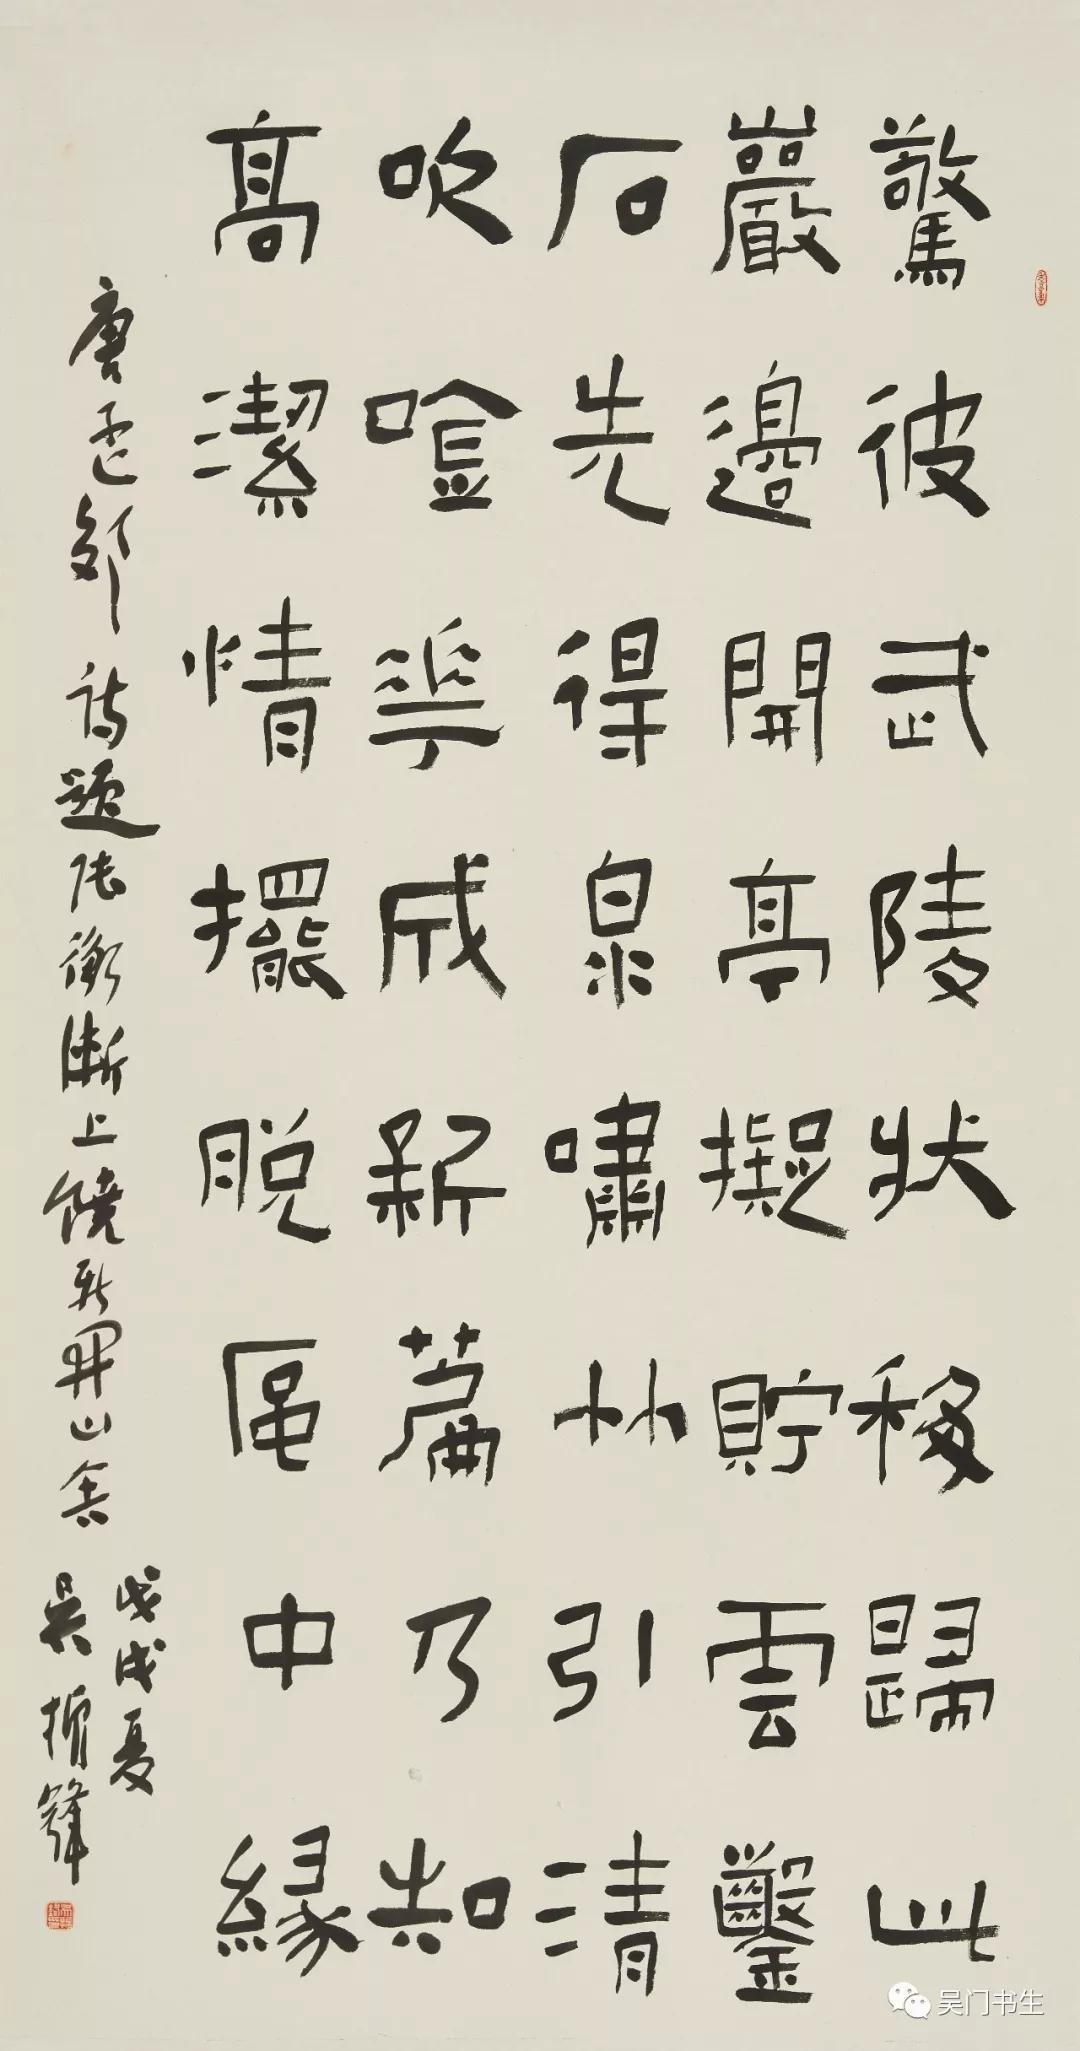 驚彼武陵狀移歸此
巖邊開亭擬貯雲鑿
石先得泉嘯竹引清
吹唫華成新篇乃知
高潔情擺脫區中緣
唐孟郊詩題陸鴻漸上饒新開山舍
戊戌夏
吴振鋒
吴门书生